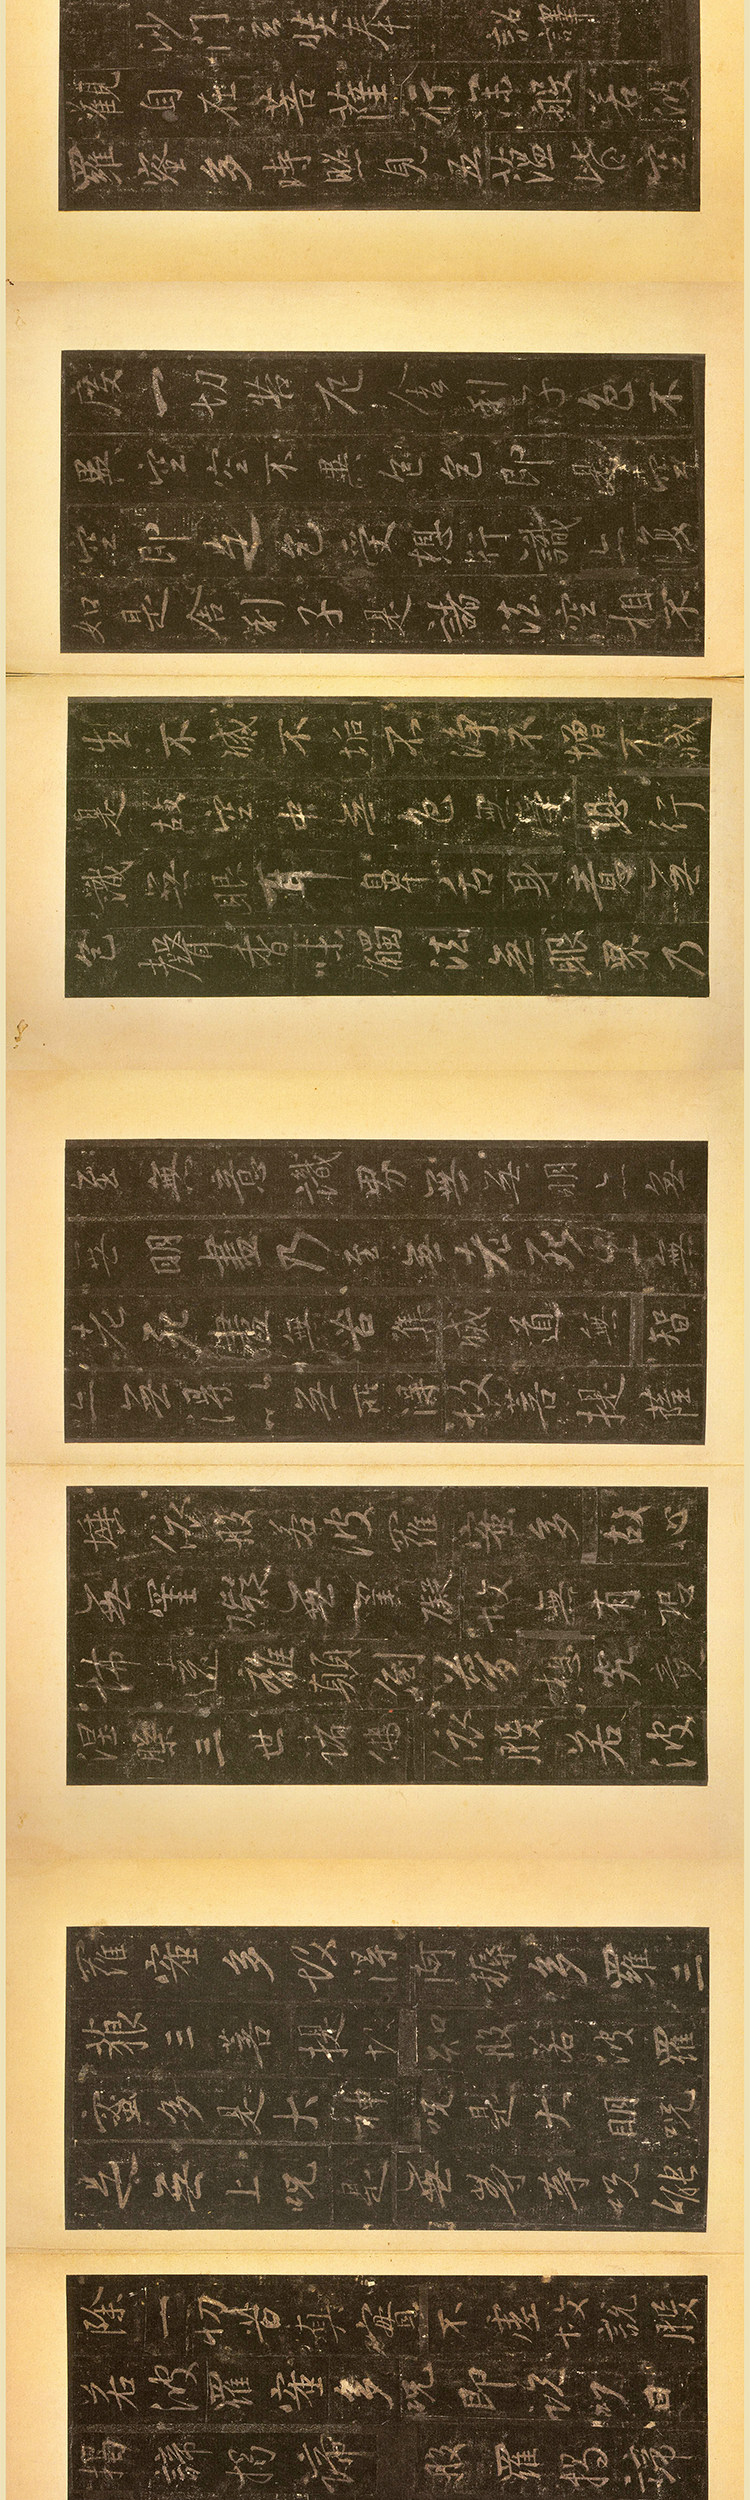 沙門玄奘奉 詔譯
觀自在菩薩行深般若波
羅蜜多時照見五蘊皆空
度一切苦厄舍利子色不
異空空不異色色即是空
空即是色受想行識亦復
如是舍利子是諸法空相不
生不滅不垢不淨不增不減
是故空中無色無受想行
識無眼耳鼻舌身意無
色聲香味觸法無眼界乃
至無意識界無無明亦無
無明盡乃至無老死亦無
老死盡無苦集滅道無智
亦無得以無所得故菩提薩
埵依般若波羅蜜多故心
無罣礙無罣礙故無有恐
怖遠離顛倒夢想究竟
涅槃三世諸佛依般若波
羅蜜多故得阿耨多羅三
藐三菩提故知般若波羅
蜜多是大神咒是大明咒
是無上咒是無等等咒能
除一切苦真實不虛故說般
若波羅蜜多咒即說咒曰
揭諦揭諦 般羅揭諦